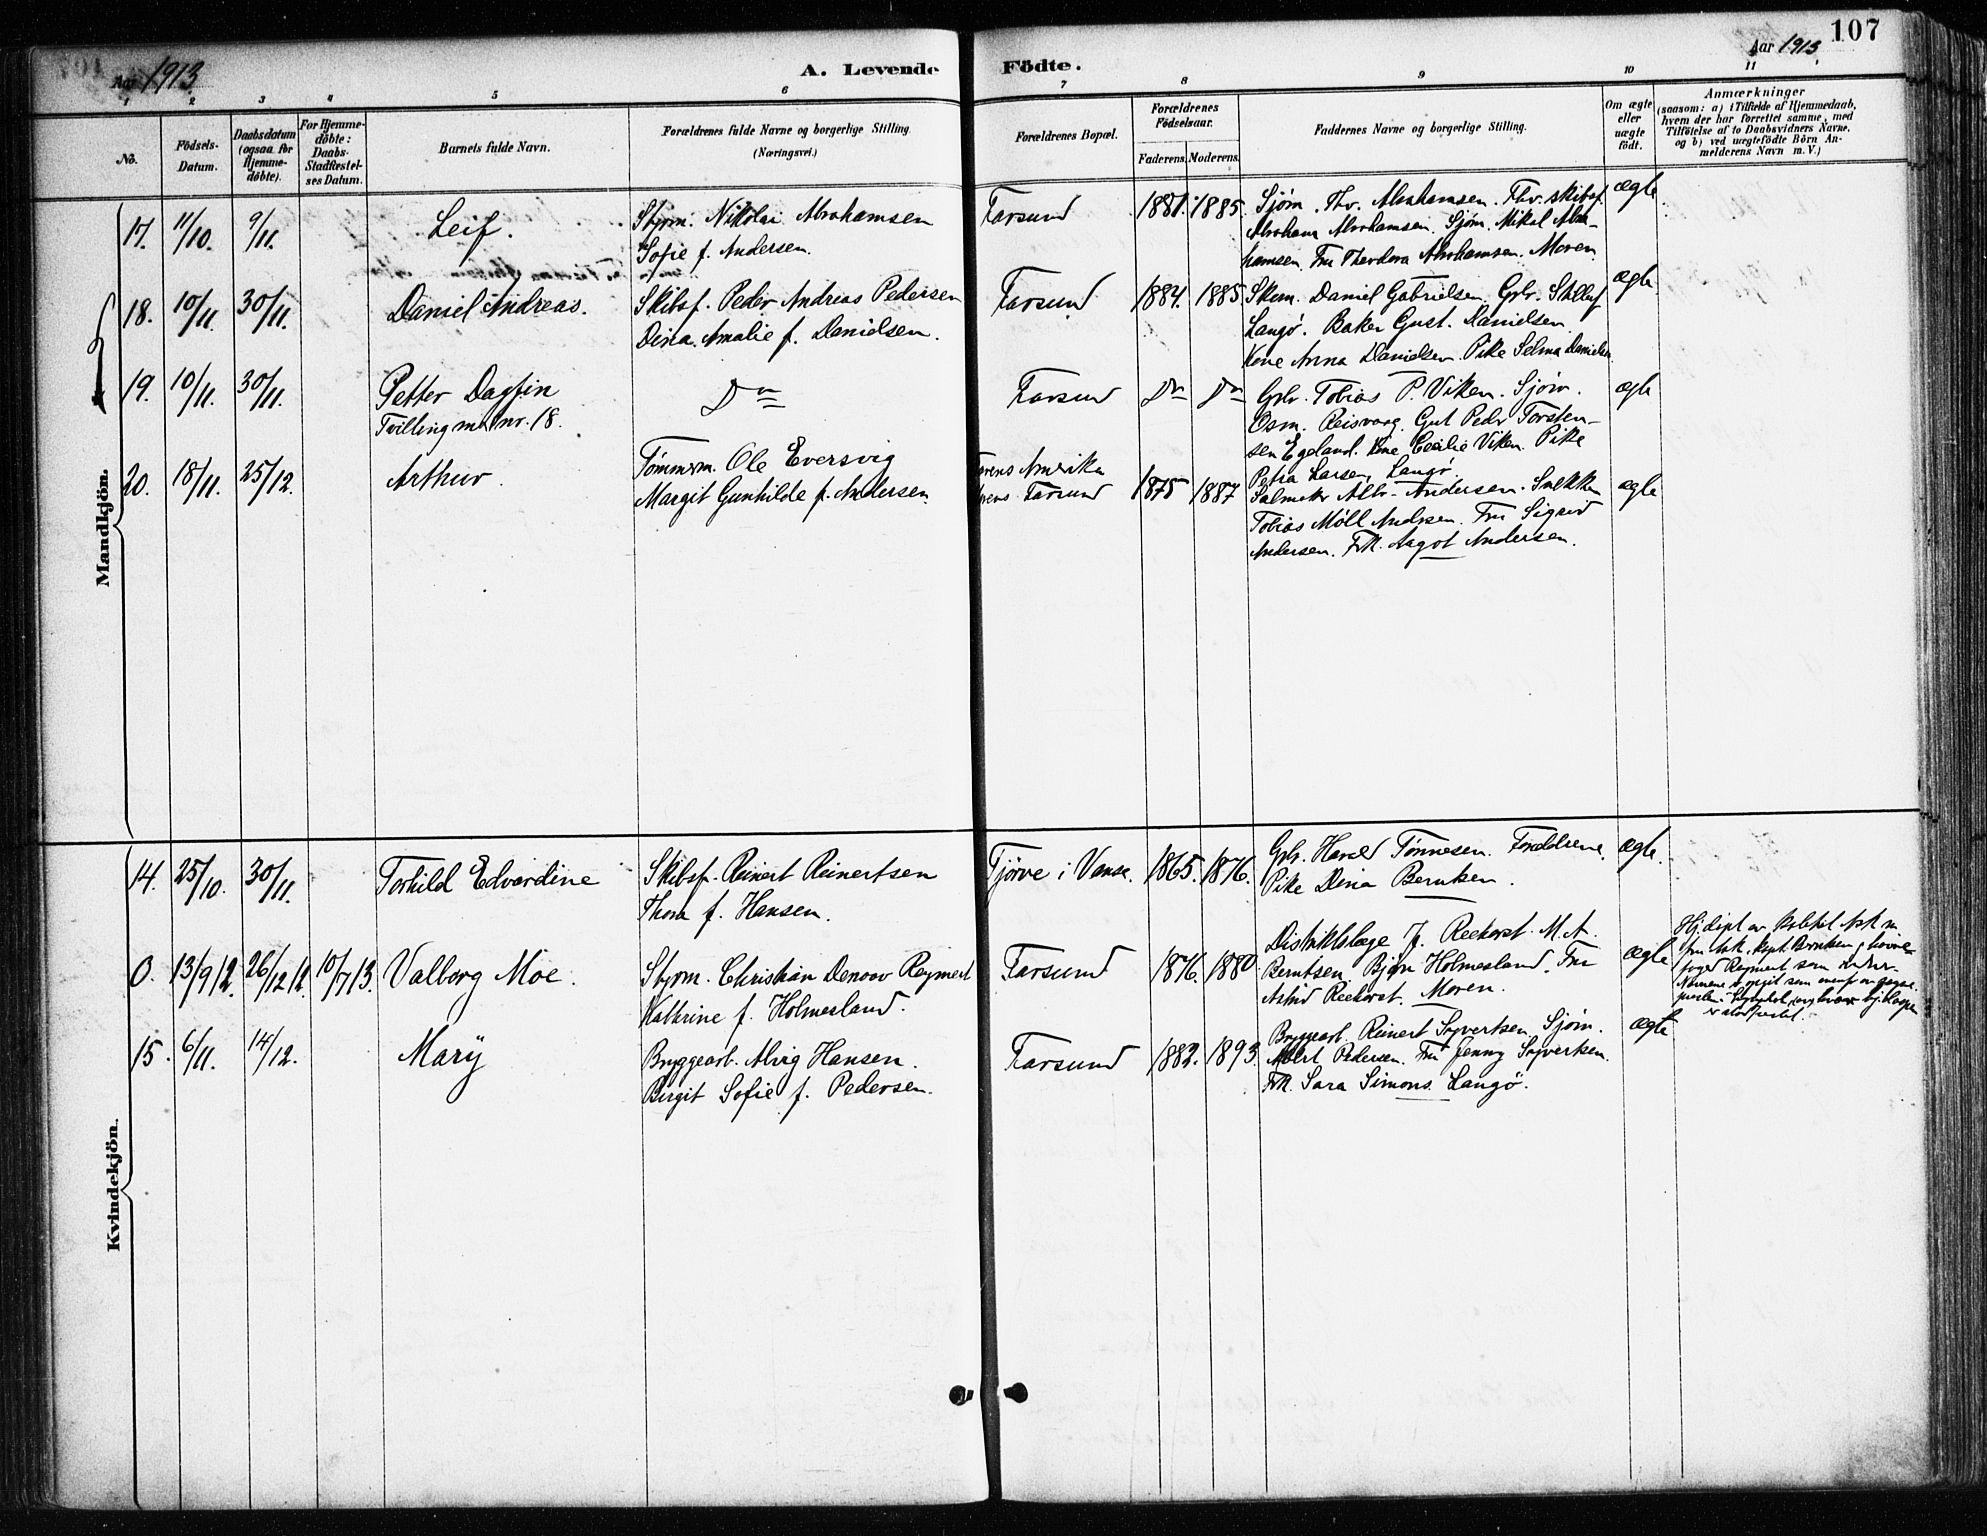 107
Aar 1913
A. Levende Födte.
Aar 1913
1 2 3 4 5 6 7 8 9 10 11
No.
Födsels-
Datum.
Daabsdatum
(ogsaa for
Hjemme-
döbte).
For Hjemme-
döbte:
Daabs-
Stadfæstel-
ses Datum.
Barnets fulde Navn.
Forældrenes fulde Navne og borgerlige Stilling.
(Næringsvei.)
Forældrenes Bopæl.
Forældrenes
Födselsaar.
Faderens. Moderens.
Faddernes Navne og borgerlige Stilling.
Om ægte
eller
uægte
födt.
Anmærkninger
(saasom: a) i Tilfælde af Hjemmedaab,
hvem der har forrettet samme, med
Tilföielse af to Daabsvidners Navne,
og b) ved uægtefödte Börn An-
melderens Navn m. V.)
Mandkjön.
17. 11/10. 9/11. Leif. Styrm. Nikolai Abrahamsen
Sofie f. Andersen.
Farsund 1881. 1885.
Sjöm. Thv. Abrahamsen. Fhv. skibsf.
Abraham Abrahamsen. Sjöm. Mikal Abra-
hamsen. Fru Theodora Abrahamsen. Moren
ægte
18. 10/11. 30/11. Daniel Andreas. Skibsf. Peder Andreas Pedersen
Dina Amalie f. Danielsen.
Farsund 1884. 1885
Skem. Daniel Gabrielsen. Gbr.
Langö. Baker Gust. Danielsen.
Kone Anna Danielsen. Pike Selma Danielsen
ægte.
19. 10/11. 30/11. Petter Dagfin
Tvilling m. nr. 18.
Do
Farsund Do Do
Gbr. Tobias P. Viken. Sjöm.
Osm. Reisvaag. Gut Peder Torsten-
sen Egeland. Kone Cecilie Viken. Pike
Petra Larsen, Langö.
ægte
20. 18/11. 25/12. Arthur. Tömmerm. Ole Eversvig
Margit Gunhilde f. Andersen.
Farens Amerika
Morens Farsund 1878 1887
Salmaker Alb. Andersen. Snekker
Tobias Möll Andersen. Fru Sigrid
Andersen. Frk. Aagot Andersen.
ægte
Kvindekjön.
14. 25/10. 30/11. Torhild Edvardine Skibsf. Reinert Reinertsen
Thora f. Hansen.
Tjörve i Vanse. 1865. 1876.
Gbr. Harald Tönnesen. Forældrene.
Pike Dina Berntsen.
ægte.
0. 13/9 12. 26/12 12. 10/7 13. Valborg Moe. Styrm. Christian Denoov Reymert
Kathrine f. Holmesland.
Farsund 1876. 1880.
Distriktslæge J. Reekorst. M. A.
Berntsen. Björn Holmesland. Fru
Astrid Reekorst. Moren.
ægte
15. 6/11. 14/12. Mary Bryggearb. Alvig Hansen.
Birgit Sofie f. Pedersen.
Farsund 1882. 1893.
Bryggearb. Reinert Syvertsen. Sjöm.
Albert Pedersen. Fru Jenny Syvertsen.
Frk. Sara Simons. Langö.
ægte